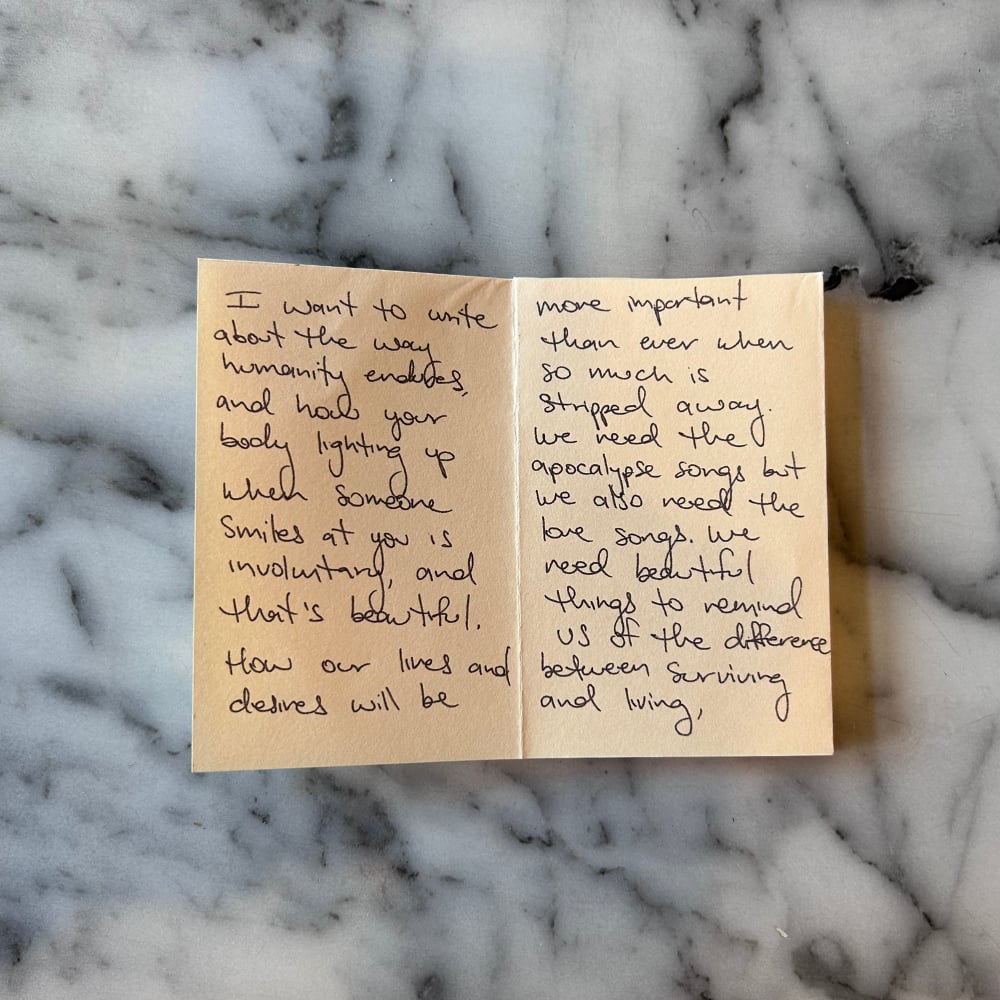 I want to write
about the way
humanity endures,
and how your
body lighting up
when someone
smiles at you is
involuntary, and
that's beautiful.
How our lives and
desires will be
more important
than ever when
so much is
stripped away.
We need the
apocalypse songs but
we also need the
love songs. We
need beautiful
things to remind
us of the difference
between surviving
and living,